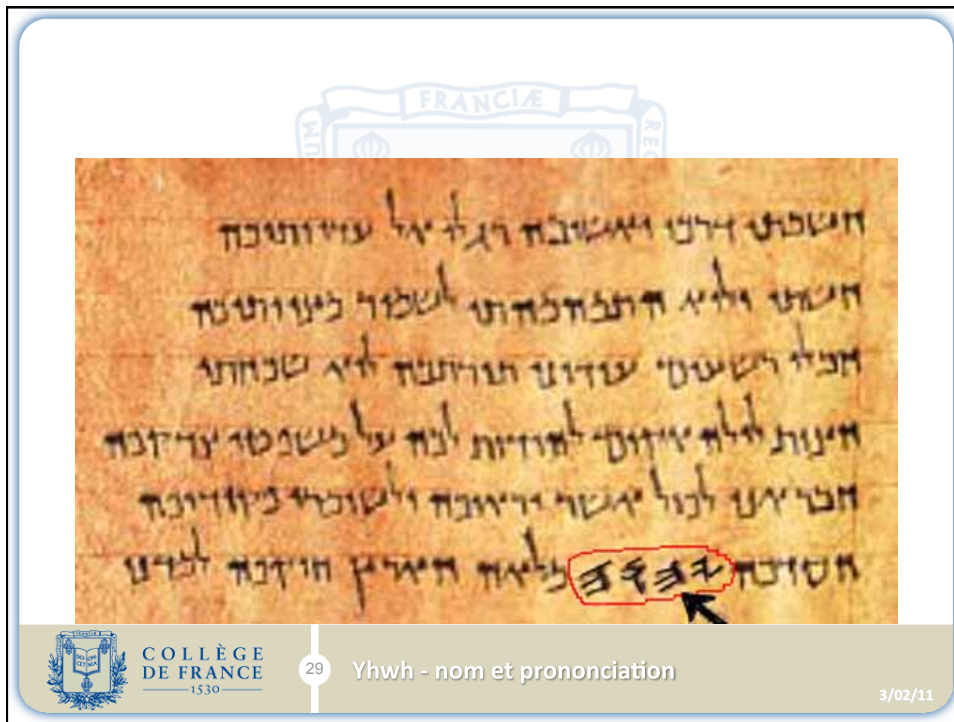 FRANCIÆ
חשבתי דרכי ואשיבה רגלי אל עדוותיכה
חשתי ולוא התמהמהתי לשמור מצוותיכה
חבלי רשעים עודוני תורתכה לוא שכחתי
חצות לילה אקום להודות לכה על משפטי צדקכה
חבר אני לכול אשר יראוכה ולשומרי פיקודיכה
חסדכה 𐤉𐤄𐤅𐤄 מלאה הארץ חוקיכה למדני
COLLÈGE
DE FRANCE
1530
29
Yhwh - nom et prononciation
3/02/11